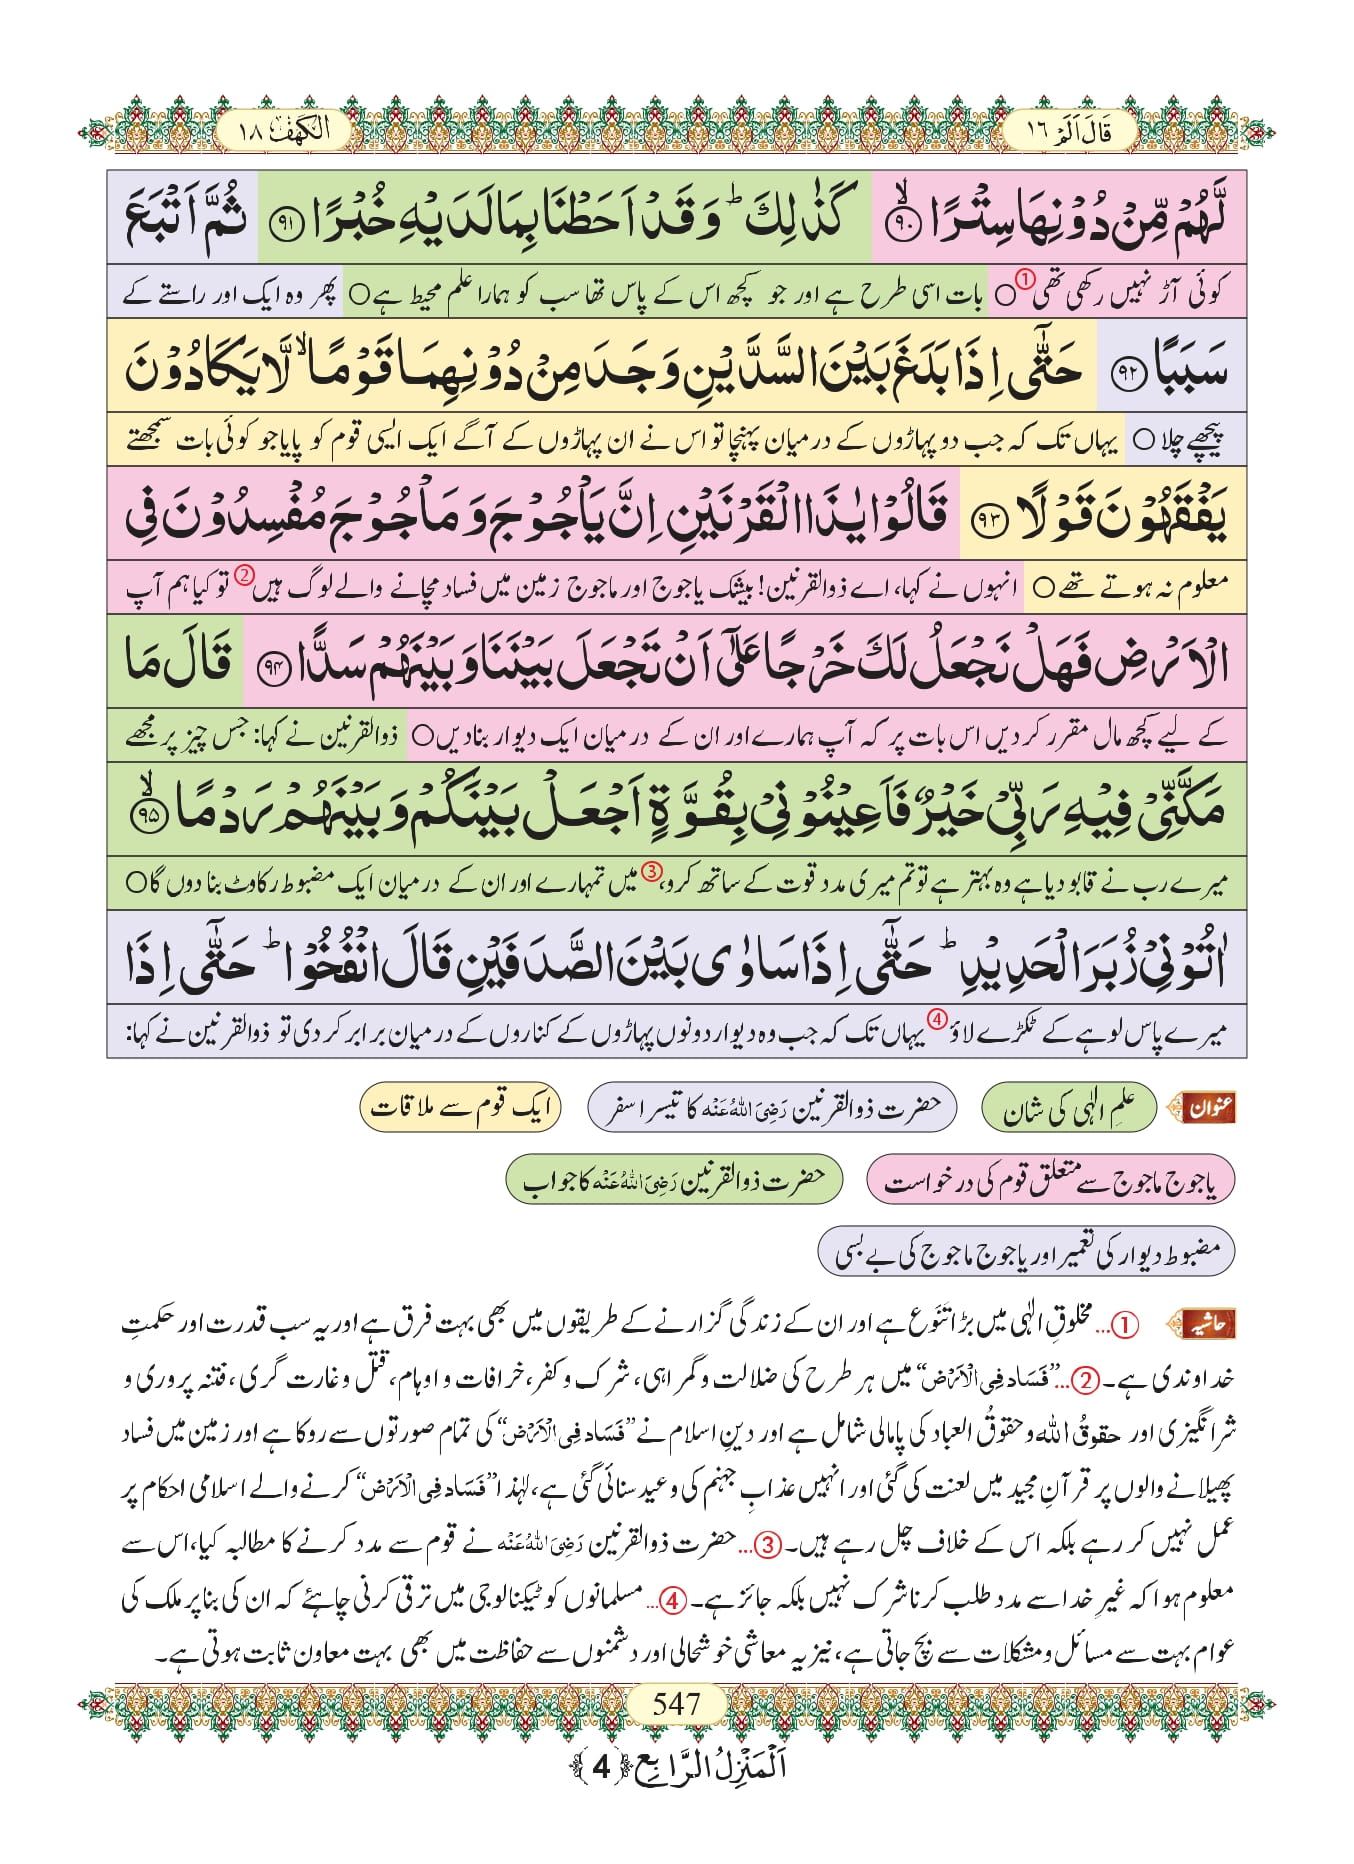 قَالَ اَلَمْ ١٦
الْكَهْف ١٨
لَّهُمْ مِّنْ دُوْنِهَا سِتْرًا ۙ﴿٩٠﴾ كَذٰلِكَ ؕ وَ قَدْ اَحَطْنَا بِمَا لَدَیْهِ خُبْرًا ﴿٩١﴾ ثُمَّ اَتْبَعَ
کوئی آڑ نہیں رکھی تھی① ○ بات اسی طرح ہے اور جو کچھ اس کے پاس تھا سب کو ہمارا علم محیط ہے ○ پھر وہ ایک اور راستے کے
سَبَبًا ﴿٩٢﴾ حَتّٰۤى اِذَا بَلَغَ بَیْنَ السَّدَّیْنِ وَجَدَ مِنْ دُوْنِهِمَا قَوْمًا ۙ لَّا یَكَادُوْنَ
پیچھے چلا ○ یہاں تک کہ جب دو پہاڑوں کے درمیان پہنچا تو اس نے ان پہاڑوں کے آگے ایک ایسی قوم کو پایا جو کوئی بات سمجھتے
یَفْقَهُوْنَ قَوْلًا ﴿٩٣﴾ قَالُوْا یٰذَا الْقَرْنَیْنِ اِنَّ یَاْجُوْجَ وَ مَاْجُوْجَ مُفْسِدُوْنَ فِی
معلوم نہ ہوتے تھے ○ انہوں نے کہا، اے ذوالقرنین! بیشک یاجوج اور ماجوج زمین میں فساد مچانے والے لوگ ہیں② تو کیا ہم آپ
الْاَرْضِ فَهَلْ نَجْعَلُ لَكَ خَرْجًا عَلٰۤى اَنْ تَجْعَلَ بَیْنَنَا وَ بَیْنَهُمْ سَدًّا ﴿٩٤﴾ قَالَ مَا
کے لیے کچھ مال مقرر کر دیں اس بات پر کہ آپ ہمارے اور ان کے درمیان ایک دیوار بنا دیں ○ ذوالقرنین نے کہا: جس چیز پر مجھے
مَكَّنِّیْ فِیْهِ رَبِّیْ خَیْرٌ فَاَعِیْنُوْنِیْ بِقُوَّةٍ اَجْعَلْ بَیْنَكُمْ وَ بَیْنَهُمْ رَدْمًا ۙ﴿٩٥﴾
میرے رب نے قابو دیا ہے وہ بہتر ہے تو تم میری مدد قوت کے ساتھ کرو،③ میں تمہارے اور ان کے درمیان ایک مضبوط رکاوٹ بنا دوں گا ○
اٰتُوْنِیْ زُبَرَ الْحَدِیْدِ ؕ حَتّٰۤى اِذَا سَاوٰى بَیْنَ الصَّدَفَیْنِ قَالَ انْفُخُوْا ؕ حَتّٰۤى اِذَا
میرے پاس لوہے کے ٹکڑے لاؤ④ یہاں تک کہ جب وہ دیوار دونوں پہاڑوں کے کناروں کے درمیان برابر کر دی تو ذوالقرنین نے کہا:
عنوان علمِ الٰہی کی شان حضرت ذوالقرنین رَضِیَ اللہُ عَنْہ کا تیسرا سفر ایک قوم سے ملاقات
یاجوج ماجوج سے متعلق قوم کی درخواست حضرت ذوالقرنین رَضِیَ اللہُ عَنْہ کا جواب
مضبوط دیوار کی تعمیر اور یاجوج ماجوج کی بے بسی
حاشیہ ①... مخلوقِ الٰہی میں بڑا تَنَوّع ہے اور ان کے زندگی گزارنے کے طریقوں میں بھی بہت فرق ہے اور یہ سب قدرت اور حکمتِ
خداوندی ہے۔ ②... ”فَسَاد فِی الْاَرْض“ میں ہر طرح کی ضلالت و گمراہی، شرک و کفر، خرافات و اوہام، قتل و غارت گری، فتنہ پروری و
شر انگیزی اور حقوقُ اللہ و حقوقُ العباد کی پامالی شامل ہے اور دینِ اسلام نے ”فَسَاد فِی الْاَرْض“ کی تمام صورتوں سے روکا ہے اور زمین میں فساد
پھیلانے والوں پر قرآنِ مجید میں لعنت کی گئی اور انہیں عذابِ جہنم کی وعید سنائی گئی ہے، لہٰذا ”فَسَاد فِی الْاَرْض“ کرنے والے اسلامی احکام پر
عمل نہیں کر رہے بلکہ اس کے خلاف چل رہے ہیں۔ ③... حضرت ذوالقرنین رَضِیَ اللہُ عَنْہ نے قوم سے مدد کرنے کا مطالبہ کیا، اس سے
معلوم ہوا کہ غیرِ خدا سے مدد طلب کرنا شرک نہیں بلکہ جائز ہے۔ ④... مسلمانوں کو ٹیکنالوجی میں ترقی کرنی چاہئے کہ ان کی بنا پر ملک کی
عوام بہت سے مسائل و مشکلات سے بچ جاتی ہے، نیز یہ معاشی خوشحالی اور دشمنوں سے حفاظت میں بھی بہت معاون ثابت ہوتی ہے۔
547
اَلْمَنْزِلُ الرَّابِع ﴿4﴾